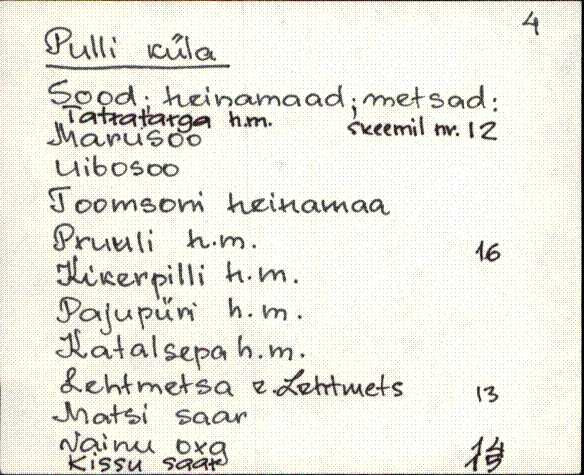 4
Pulli küla
Sood; heinamaad; metsad:
Tatratarga h.m. skeemil nr. 12
Marusoo
Uibosoo
Toomsoni heinamaa
Pruuli h.m. 16
Kikerpilli h.m.
Pajupüri h.m.
Katalsepa h.m.
Lehtmetsa e. Lehtmets 13
Matsi saar
Nainu oxa 14
Kissu saar 15